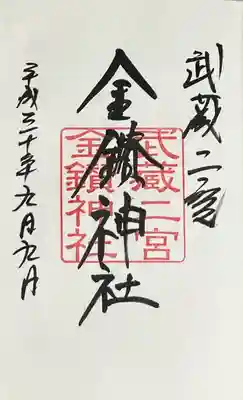 武蔵二宮
金鑚神社
武蔵二宮
金鑚神社
平成三十年九月九日